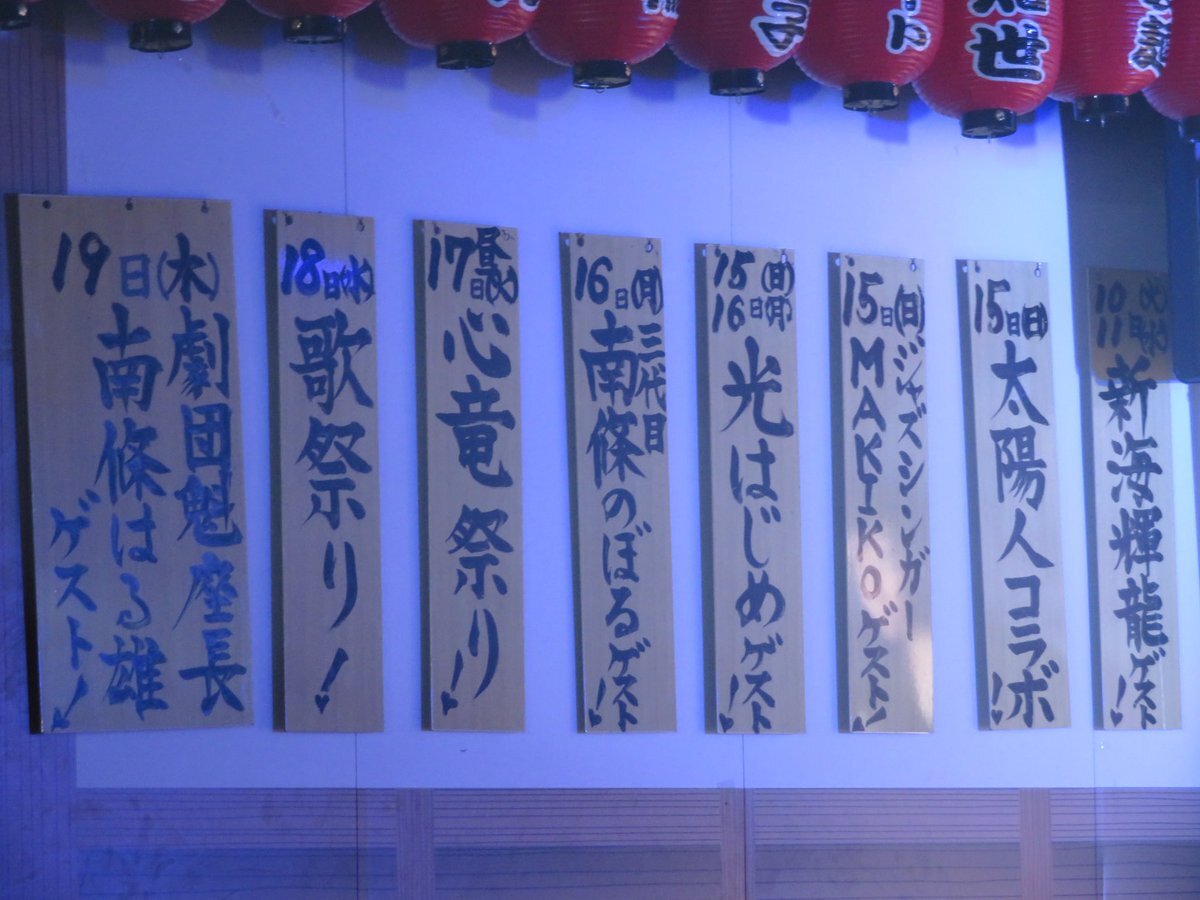 世
10日(火)
11日(水)
新海輝龍ゲスト!
15日(日)
太陽人コラボ!
15日(日)
ジャズシンガー
MAKIKOゲスト!
15日(日)
16日(月)
光はじめゲスト!
16日(月)
三代目
南條のぼるゲスト!
17日昼(火)
心竜祭り!
18日(水)
歌祭り!
19日(木)
劇団魁座長
南條はる雄
ゲスト!